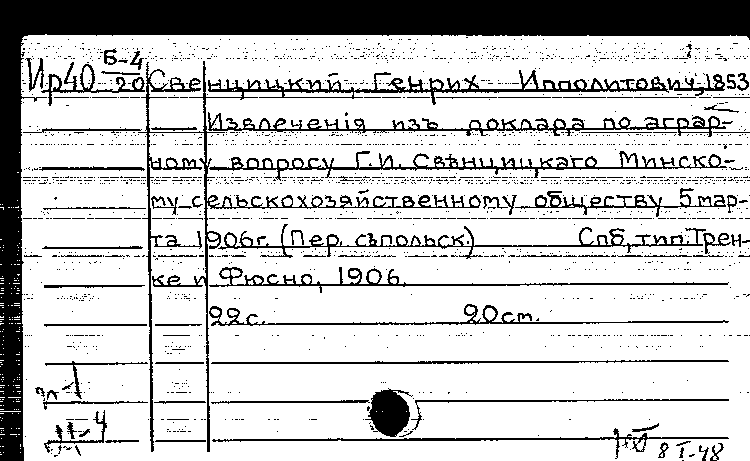 Ир40 Б-4/20 Свенцицкий, Генрих Ипполитович, 1853
Извлеченія изъ доклада по аграр-
ному вопросу Г.И. Свѣнцицкаго Минско-
му сельскохозяйственному обществу 5 мар-
та 1906г. (Пер. съпольск.) Спб, тип. Трен-
ке и Фюсно, 1906.
22с. 20ст.
п-1
-4
8 I-48